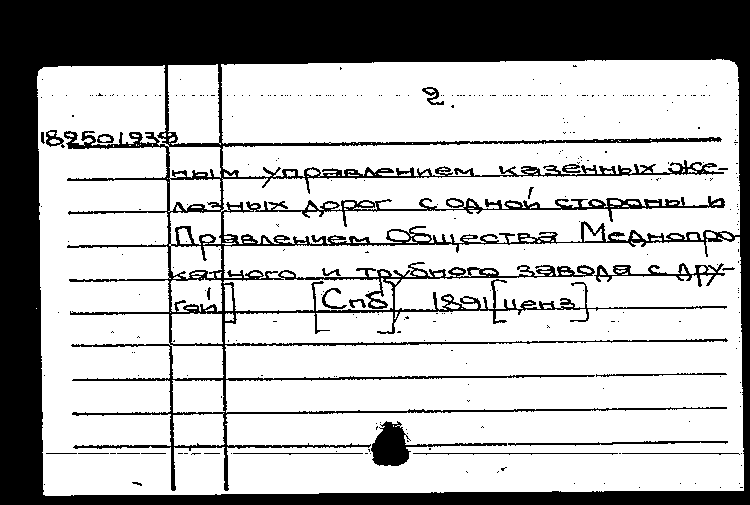 2.
182501239
ным управлением казенных же-
лезных дорог с одной стороны и
Правлением Общества Меднопро-
катного и трубного завода с дру-
гой] [Спб], 1891 [ценз]